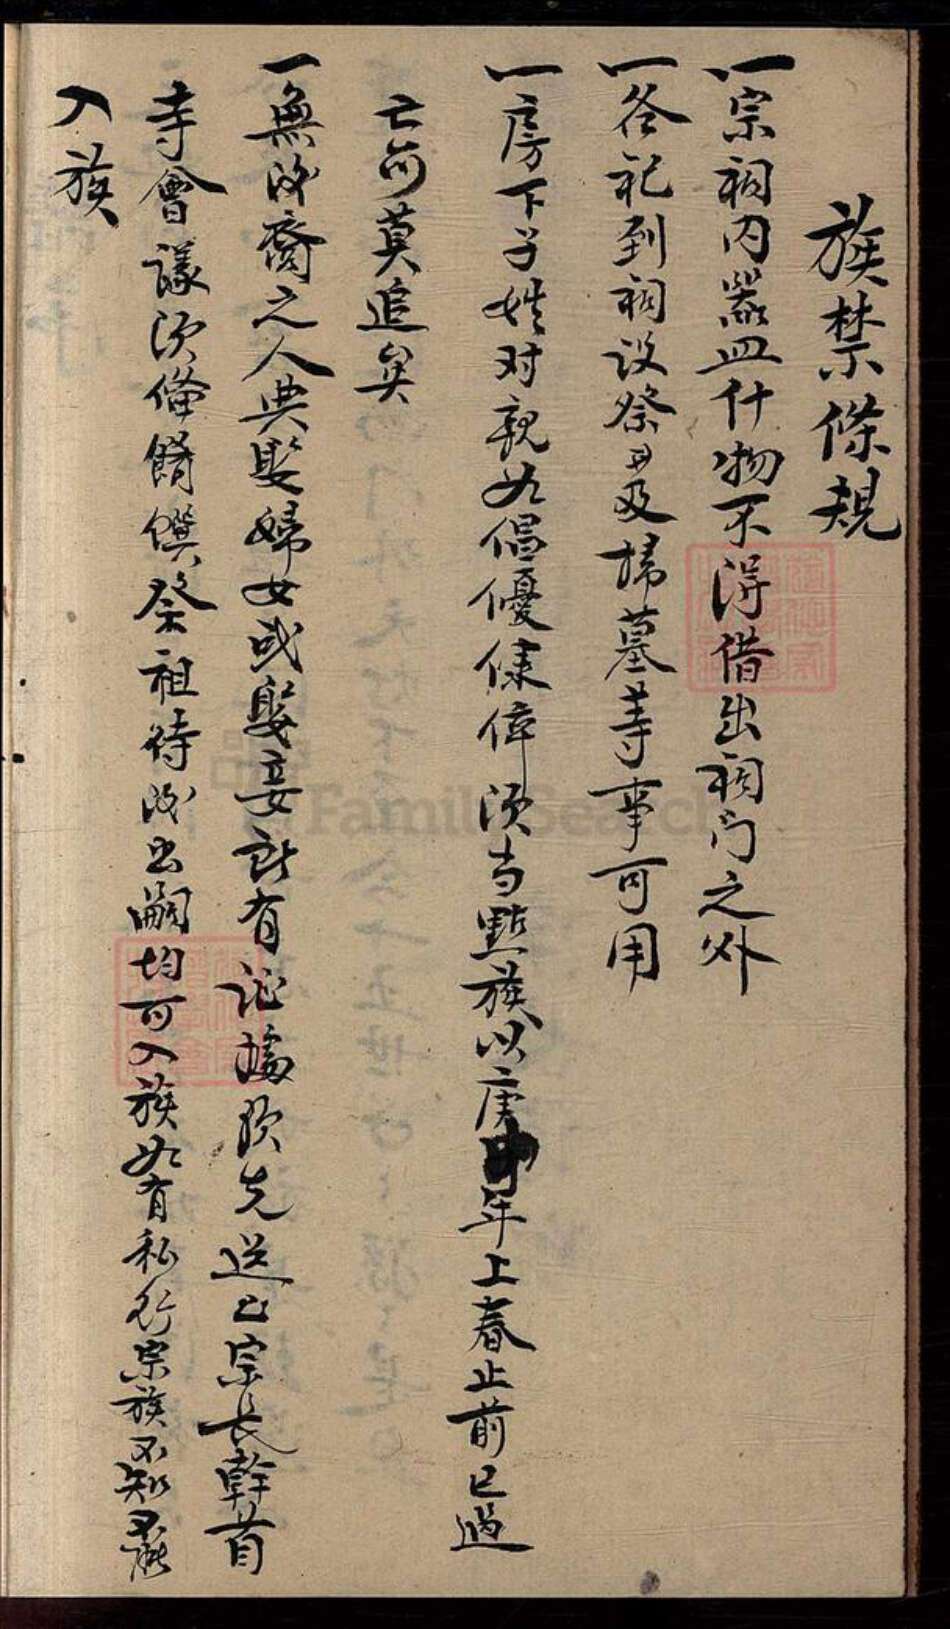 族禁條規
一宗祠内器皿什物不得借出祠门之外
一各祀到祠设祭以及掃墓等事可用
一房下子姓对親如倡優隸倅须当點族以庚申年上春止前已過
亡勿莫追矣
一無後裔之人典娶婦女或娶妾許有证據须先送上宗長幹首
等會議须俻餚饌祭祖待後出嗣均可入族如有私行宗族不知不能
入族
FamilySearch